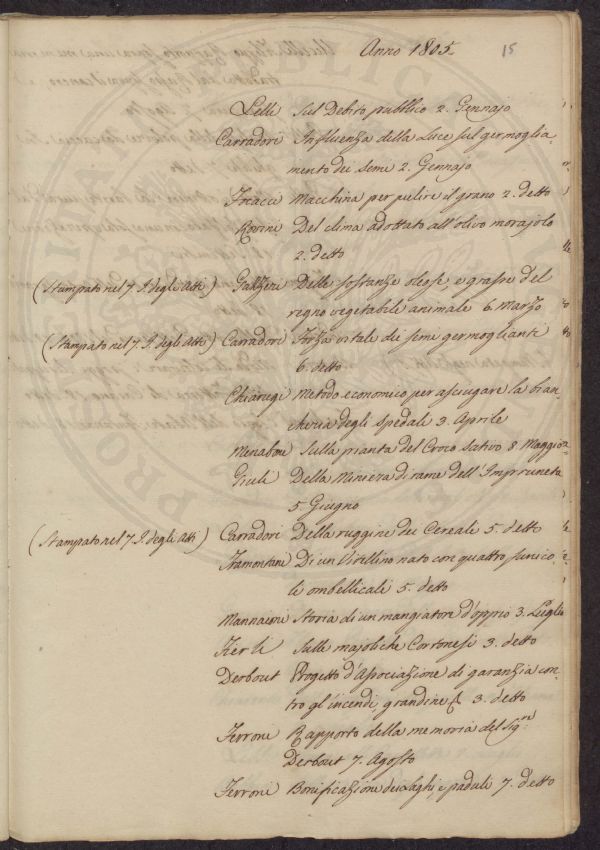 Anno 1805. 15
Lelli Sul Debito pubblico 2. Gennajo
Carradori Influenza della Luce sul germoglia-
mento dei semi 2. Gennajo
Focacci Macchina per pulire il grano 2. detto
Rovini Del clima adottato all'olivo morajolo
2. detto
(Stampato nel 7 T. degli Atti) Gallizi Delle sostanze oleose, e grasse del
regno vegetabile animale 6. Marzo
(Stampato nel 7. T. degli Atti) Carradori Forza vitale dei semi germoglianti
6. detto
Chiarugi Metodo economico per asciugare la bian
cheria degli spedali 3. Aprile
Menabuoni Sulla pianta del Croco sativo 8. Maggio
Giuli Della Miniera di rame dell'Impruneta
5. Giugno
(Stampato nel 7 T. degli Atti) Carradori Della ruggine dei Cereali 5. detto
Tramontani Di un Vitellino nato con quattro funico
li ombellicali 5. detto
Mannaioni Storia di un mangiatore d'oppio 3. Luglio
Zerli Sulle majoliche Cortonesi 3. detto
Derbout Progetto d'Associazione di garanzia con
tro gl'incendi, grandine & 3. detto
Ferroni Rapporto della memoria del Sig.re
Derbout 7. Agosto
Ferroni Bonificazioni dei Laghi, e paduli 7. detto